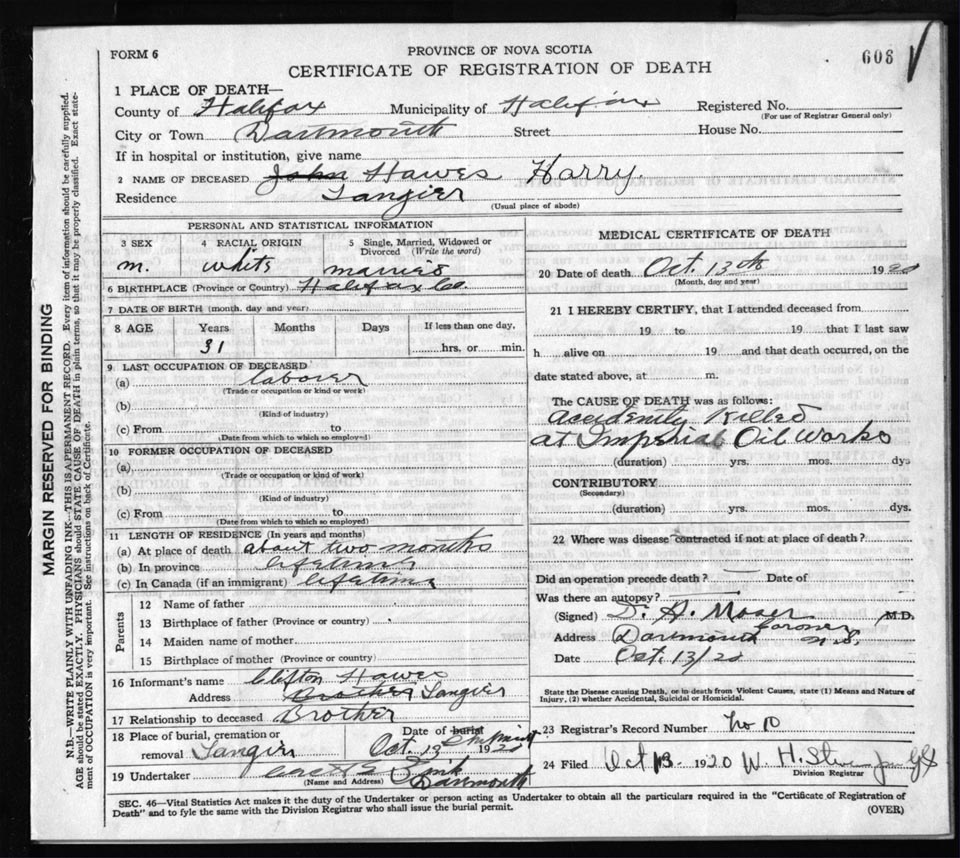 FORM 6
PROVINCE OF NOVA SCOTIA
608
CERTIFICATE OF REGISTRATION OF DEATH
1 PLACE OF DEATH—
County of Halifax Municipality of Halifax Registered No.
(For use of Registrar General only)
City or Town Dartmouth Street House No.
If in hospital or institution, give name
2 NAME OF DECEASED John Hawes Harry.
Residence Tangier
(Usual place of abode)
PERSONAL AND STATISTICAL INFORMATION
3 SEX 4 RACIAL ORIGIN 5 Single, Married, Widowed or Divorced (Write the word)
m. white married
6 BIRTHPLACE (Province or Country) Halifax Co.
7 DATE OF BIRTH (month, day and year)
8 AGE Years Months Days If less than one day,
31 hrs. or min.
9 LAST OCCUPATION OF DECEASED
(a) laborer
(Trade or occupation or kind or work)
(b)
(Kind of industry)
(c) From to
(Date from which to which so employed)
10 FORMER OCCUPATION OF DECEASED
(a)
(Trade or occupation or kind of work)
(b)
(Kind of industry)
(c) From to
(Date from which to which so employed)
11 LENGTH OF RESIDENCE (In years and months)
(a) At place of death about two months
(b) In province lifetime
(c) In Canada (if an immigrant) lifetime
Parents
12 Name of father
13 Birthplace of father (Province or country)
14 Maiden name of mother
15 Birthplace of mother (Province or country)
16 Informant's name Clifton Hawes
Address Brother Tangier
17 Relationship to deceased Brother
18 Place of burial, cremation or Date of burial
removal Tangier Oct. 13 1920
19 Undertaker
(Name and Address) Dartmouth
MEDICAL CERTIFICATE OF DEATH
20 Date of death Oct. 13th 1920
(Month, day and year)
21 I HEREBY CERTIFY, that I attended deceased from
19 to 19 that I last saw
h alive on 19 and that death occurred, on the
date stated above, at m.
The CAUSE OF DEATH was as follows:
Accidently Killed
at Imperial Oil Works
(duration) yrs. mos. dys
CONTRIBUTORY
(Secondary)
(duration) yrs. mos. dys.
22 Where was disease contracted if not at place of death?
Did an operation precede death? Date of
Was there an autopsy?
(Signed) D. H. Moser M.D.
Coroner
Address Dartmouth N.S.
Date Oct. 13/20
State the Disease causing Death, or in death from Violent Causes, state (1) Means and Nature of
Injury, (2) whether Accidental, Suicidal or Homicidal.
23 Registrar's Record Number
24 Filed Oct 13 1920 W. H.
Division Registrar
SEC. 46—Vital Statistics Act makes it the duty of the Undertaker or person acting as Undertaker to obtain all the particulars required in the "Certificate of Registration of
Death" and to fyle the same with the Division Registrar who shall issue the burial permit.
(OVER)
MARGIN RESERVED FOR BINDING
N.B.—WRITE PLAINLY WITH UNFADING INK—THIS IS A PERMANENT RECORD. Every item of information should be carefully supplied.
AGE should be stated EXACTLY. PHYSICIANS should STATE CAUSE OF DEATH in plain terms, so that it may be properly classified. Exact state-
ment of OCCUPATION is very important. See instructions on back of Certificate.